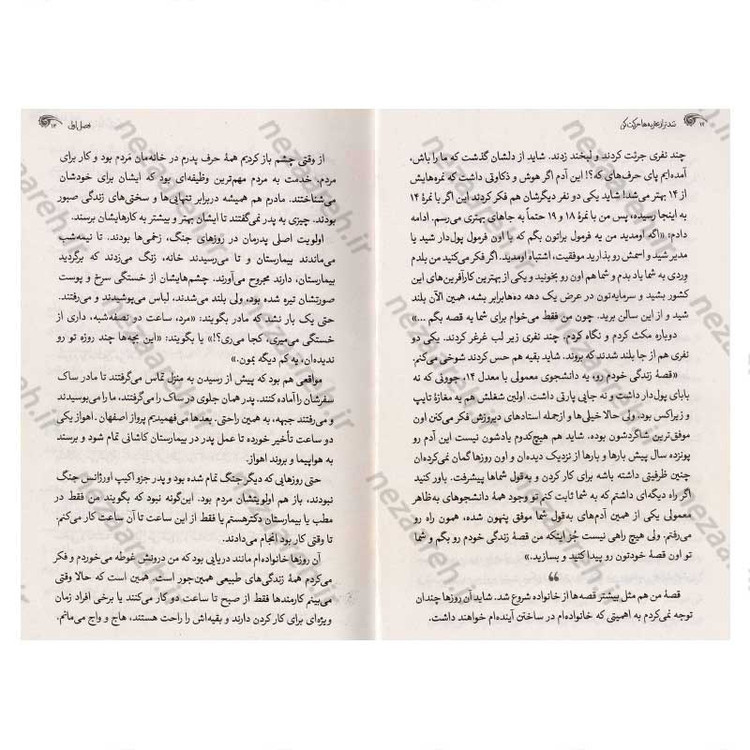 ۱۲
تندتر از عقربه‌ها حرکت کن
چند نفری جرئت کردند و لبخند زدند. شاید از دلشان گذشت که ما را باش،
آمده‌ایم پای حرف‌های که؟! این آدم اگر هوش و ذکاوتی داشت که نمره‌هایش
از ۱۴ بهتر می‌شد! شاید یکی دو نفر دیگرشان هم فکر کردند این اگر با نمرۀ ۱۴
به اینجا رسیده، پس من با نمرۀ ۱۸ و ۱۹ حتماً به جاهای بهتری می‌رسم. ادامه
دادم: «اگه اومدید من یه فرمول براتون بگم که با اون فرمول پول‌دار شید یا
مدیر شید و اسمش رو بذارید موفقیت، اشتباه اومدید. اگر فکر می‌کنید من بلدم
وردی به شما یاد بدم و شما هم اون رو بخونید و یکی از بهترین کارآفرین‌های این
کشور بشید و سرمایه‌تون در عرض یک دهه ده‌هابرابر بشه، همین الآن بلند
شید و از این سالن برید. چون من فقط می‌خوام برای شما یه قصه بگم ...»
دوباره مکث کردم و نگاه کردم. چند نفری زیر لب غرغر کردند. یکی دو
نفری هم از جا بلند شدند که بروند. شاید بقیه هم حس کردند شوخی می‌کنم.
«قصۀ زندگی خودم رو، یه دانشجوی معمولی با معدل ۱۴، جوونی که نه
بابای پول‌دار داشت و نه جایی پارتی داشت. اولین شغلش هم یه مغازۀ تایپ
و زیراکس بود. ولی حالا خیلی‌ها و ازجمله استادهای دیروزش فکر می‌کنن اون
موفق‌ترین شاگردشون بوده. شاید هم هیچ‌کدوم یادشون نیست این آدم رو
پونزده سال پیش بارها و بارها از نزدیک دیده‌ان و اون روزها گمان نمی‌کرده‌ان
چنین ظرفیتی داشته باشه برای کار کردن و به‌قول شما پیشرفت. باور کنید
اگر راه دیگه‌ای داشتم که به شما ثابت کنم تو وجود همۀ دانشجوهای به‌ظاهر
معمولی یکی از همین آدم‌های به‌قول شما موفق پنهون شده، همون راه رو
می‌رفتم. ولی هیچ راهی نیست جُز اینکه من قصۀ زندگی خودم رو بگم و شما
تو اون قصۀ خودتون رو پیدا کنید و بسازید.»
قصۀ من هم مثل بیشتر قصه‌ها از خانواده شروع شد. شاید آن روزها چندان
توجه نمی‌کردم به اهمیتی که خانواده‌ام در ساختن آینده‌ام خواهند داشت.
فصل اول
۱۳
از وقتی چشم باز کردیم همۀ حرف پدرم در خانه‌مان مَردم بود و کار برای
مردم. خدمت به مردم مهم‌ترین وظیفه‌ای بود که ایشان برای خودشان
می‌شناختند. مادرم هم همیشه دربرابر تنهایی‌ها و سختی‌های زندگی صبور
بودند. چیزی به پدر نمی‌گفتند تا ایشان بهتر و بیشتر به کارهایشان برسند.
اولویت اصلی پدرمان در روزهای جنگ، زخمی‌ها بودند. تا نیمه‌شب
می‌ماندند بیمارستان و تا می‌رسیدند خانه، زنگ می‌زدند که برگردید
بیمارستان، دارند مجروح می‌آورند. چشم‌هایشان از خستگی سرخ و پوست
صورتشان تیره شده بود، ولی بلند می‌شدند، لباس می‌پوشیدند و می‌رفتند.
حتی یک بار نشد که مادر بگویند: «مرد، ساعت دو نصفه‌شبه، داری از
خستگی می‌میری، کجا می‌ری؟!» یا بگویند: «این بچه‌ها چند روزه تو رو
ندیده‌ان، یه کم دیگه بمون.»
مواقعی هم بود که پیش از رسیدن به منزل تماس می‌گرفتند تا مادر ساک
سفرشان را آماده کنند. پدر همان جلوی در ساک را می‌گرفتند، ما را می‌بوسیدند
و می‌رفتند جبهه، به همین راحتی. بعدها می‌فهمیدیم پرواز اصفهان ـ اهواز یکی
دو ساعت تأخیر خورده تا عمل پدر در بیمارستان کاشانی تمام شود و برسند
به هواپیما و بروند اهواز.
حتی روزهایی که دیگر جنگ تمام شده بود و پدر جزو اکیپ اورژانس جنگ
نبودند، باز هم اولویتشان مردم بود. این‌گونه نبود که بگویند من فقط در
مطب یا بیمارستان دکتر هستم یا فقط از این ساعت تا آن ساعت کار می‌کنم.
تا وقتی کار بود انجام می‌دادند.
آن روزها خانواده‌ام مانند دریایی بود که من درونش غوطه می‌خوردم و فکر
می‌کردم همۀ زندگی‌های طبیعی همین‌جور است. همین است که حالا وقتی
می‌بینم کارمندها فقط از صبح تا ساعت دو کار می‌کنند یا برخی افراد زمان
ویژه‌ای برای کار کردن دارند و بقیه‌اش را راحت هستند، هاج و واج می‌مانم.
nezaareh.ir